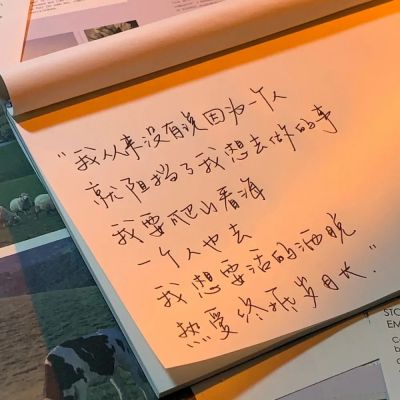 "我从来没有说因为一个人
就阻挡了我想去做的事
我要爬山看海
一个人也去
我想要活的洒脱
热爱终抵岁月长."